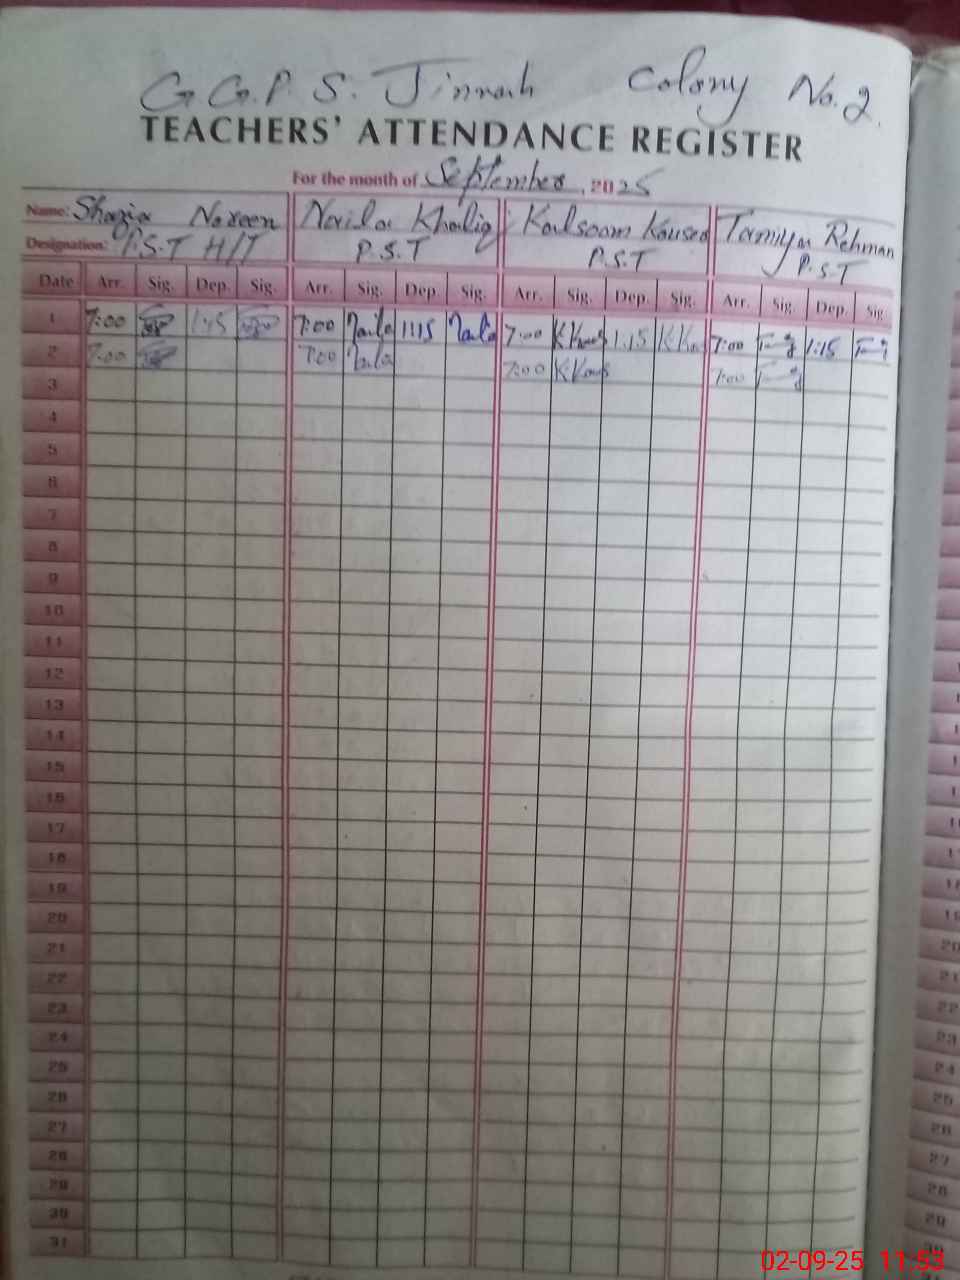 G.G.P.S. Jinnah Colony No.2
TEACHERS' ATTENDANCE REGISTER
For the month of September, 2025
Name: Shazia Noreen Naila Khaliq Kalsoom Kausar Tamiya Rehman
Designation: P.S.T H/T P.S.T P.S.T P.S.T
Date Arr. Sig. Dep. Sig. Arr. Sig. Dep. Sig. Arr. Sig. Dep. Sig. Arr. Sig. Dep. Sig.
1 7:00 1:15 7:00 Naila 1:15 Naila 7:00 1:15 7:00 1:15
2 7:00 7:00 Naila 7:00 7:00
3
4
5
6
7
8
9
10
11
12
13
14
15
16
17
18
19
20
21
22
23
24
25
26
27
28
29
30
31
02-09-25 11:53